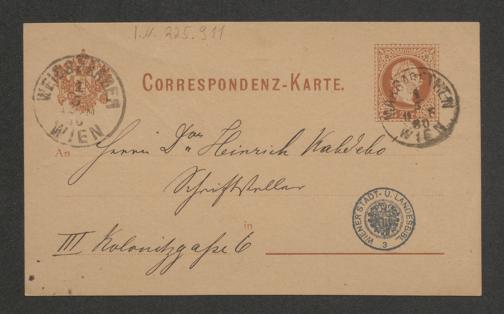 I.N. 225.911
CORRESPONDENZ-KARTE.
WEISSGÄRBER
WIEN
WIEN
An Herrn Dor Heinrich Kabdebo
Schriftsteller
in
III Kolonitzgaße 6
WIENER STADT- U. LANDESBIBL.
3